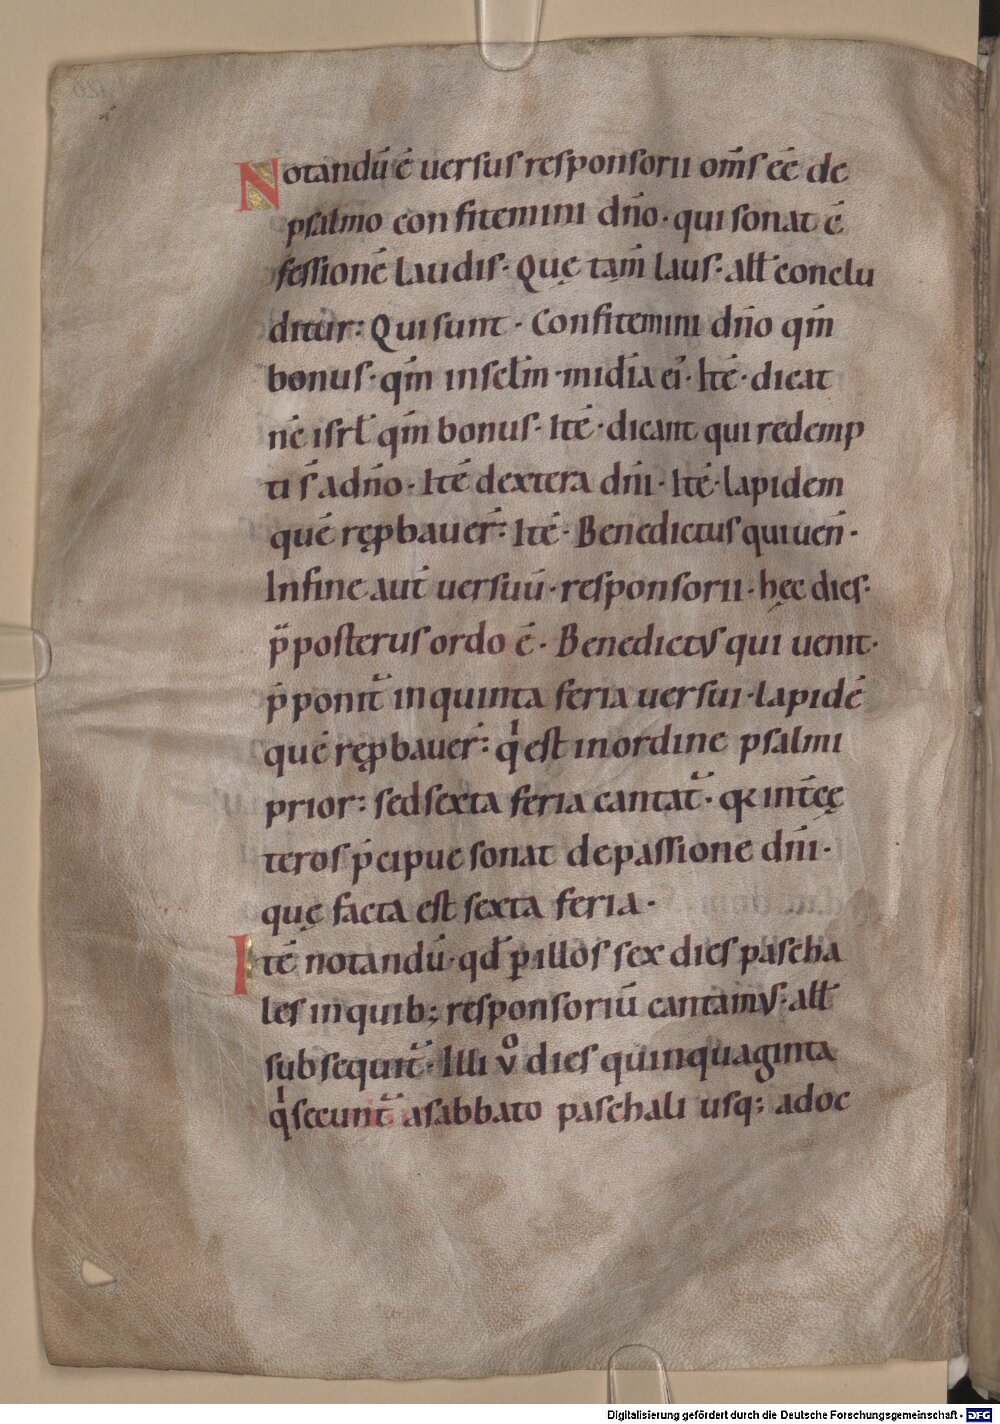 Notandū ē uersus responsorii om̅s eē de
psalmo confitemini dn̄o · qui sonat ē
fessionē laudis · Quę tam̅ laus · all̅ conclu
ditur : Qui sunt · Confitemini dn̄o qm̅
bonus · qm̅ in scl̅m · mid̅ia ei᾽ · Itē · dicat
nc̅ isrl̅ qm̅ bonus · Itē · dicant qui redemp
ti s̅ a dn̄o · Itē dextera dn̄i · Itē · lapidem
quē rępbauer̅ : Itē · Benedictus qui uen̅ ·
In fine aut̅ uersuū · responsorii · hęc dies ·
p̄posterus ordo ē · Benedictus qui uenit ·
p̄ponit᷑ in quinta feria uersui · lapidē
quē rępbauer̅ : qͥ est in ordine psalmi
prior : sed sexta feria cantat᷑ · qꝛ int̅ cę
teros p̄cipue sonat de passione dn̄i ·
quę facta est sexta feria ·
Itē notandū · qd̅ ꝑ illos sex dies pascha
les in quib; responsoriū cantamus : all̅
subsequit᷑ · Illi uͦ dies quinquaginta
qͥ secunt᷑ a sabbato paschali usq; ad oc
Digitalisierung gefördert durch die Deutsche Forschungsgemeinschaft - DFG